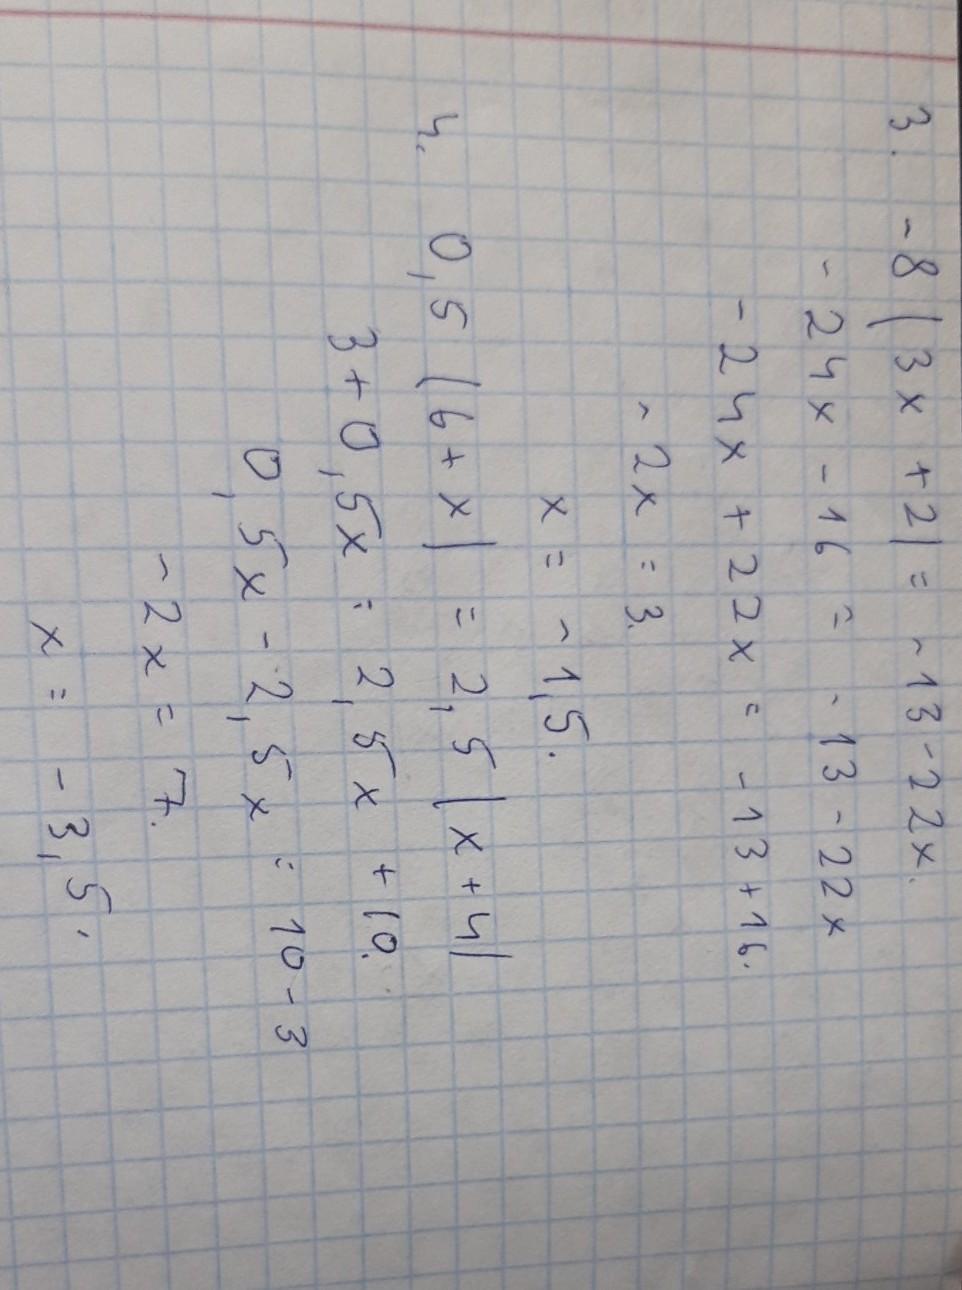 3. -8(3x+2)= -13-22x.
-24x-16= -13-22x
-24x+22x= -13+16.
-2x=3.
x= -1,5.
4. 0,5(6+x)=2,5(x+4)
3+0,5x=2,5x+10.
0,5x-2,5x=10-3
-2x=7.
x= -3,5.